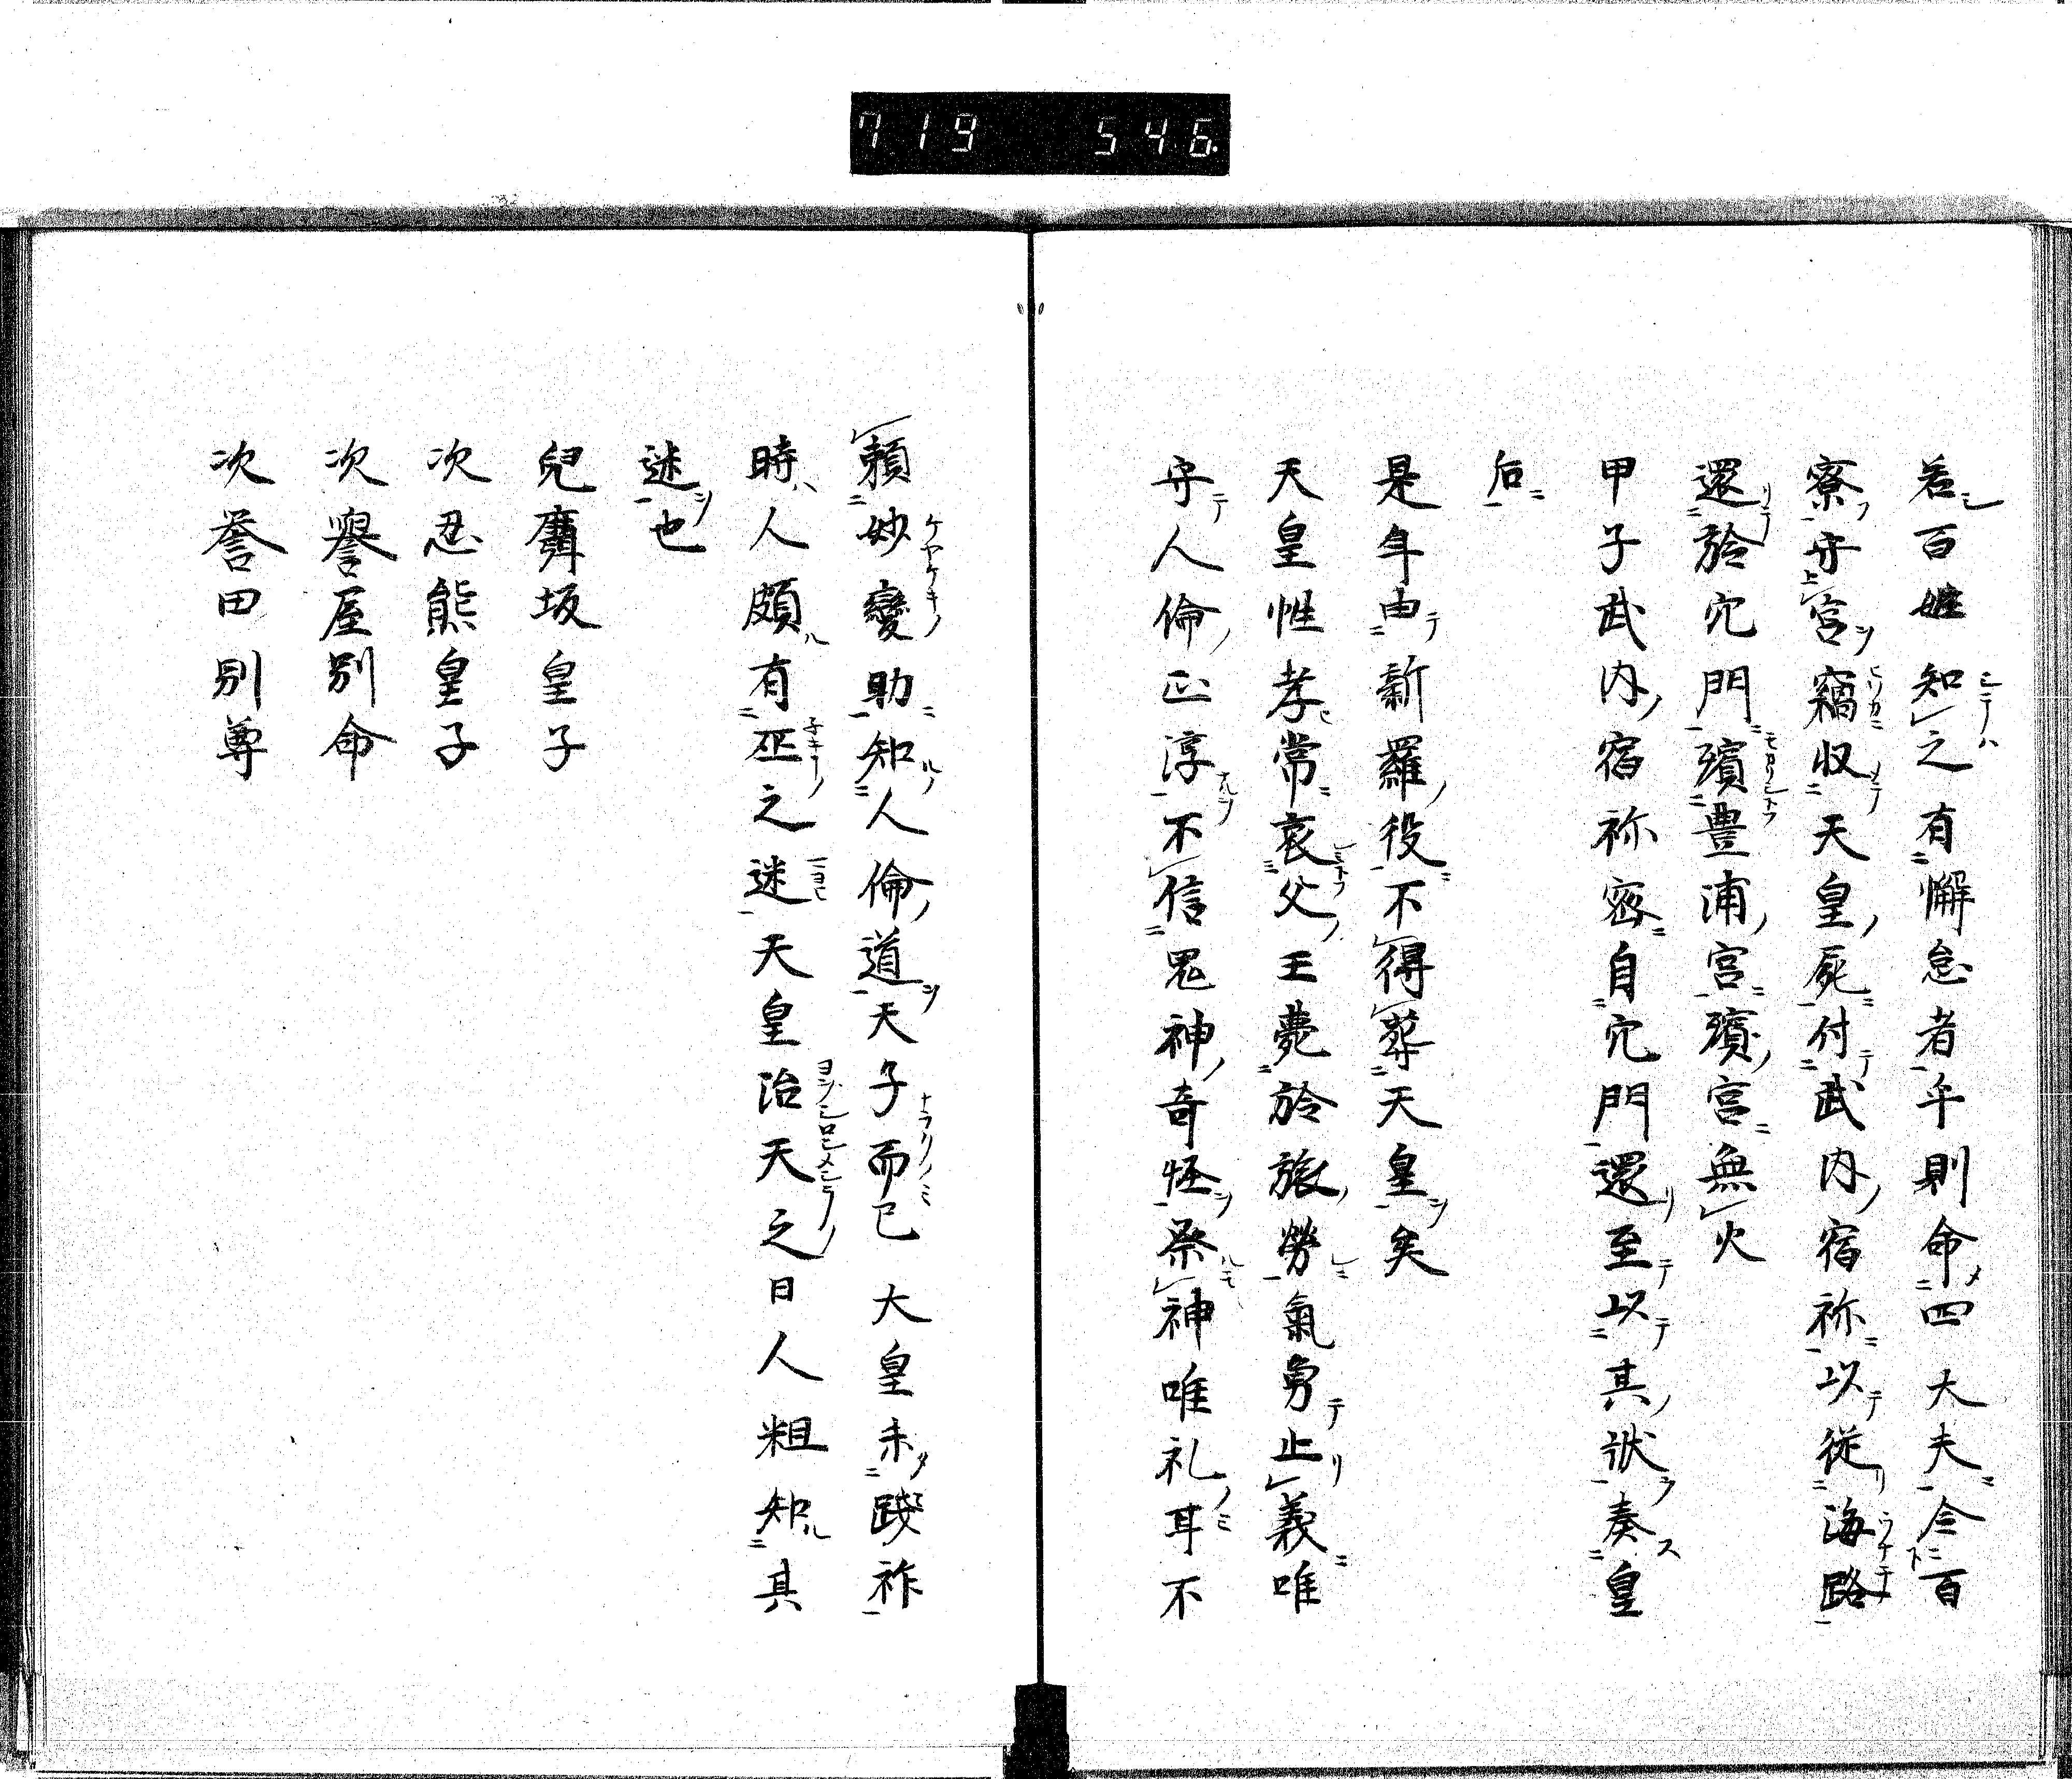 719 546.
若百姓知之有懈怠者乎則命四大夫令百
寮守宮竊収天皇屍付武内宿祢以従海路
還於穴門殯豊浦宮殯宮無火
甲子武内宿祢密自穴門還至以其状奏皇
后
是年由新羅役不得葬天皇矣
天皇性孝常哀父王薨於旅勞氣勇止義唯
守人倫正淳不信鬼神奇怪祭神唯礼耳不
頼妙變助知人倫道天子而已大皇未踐祚
時人頗有巫之迷天皇治天之日人粗知其
迷也
兒麛坂皇子
次忍熊皇子
次譽屋別命
次誉田別尊